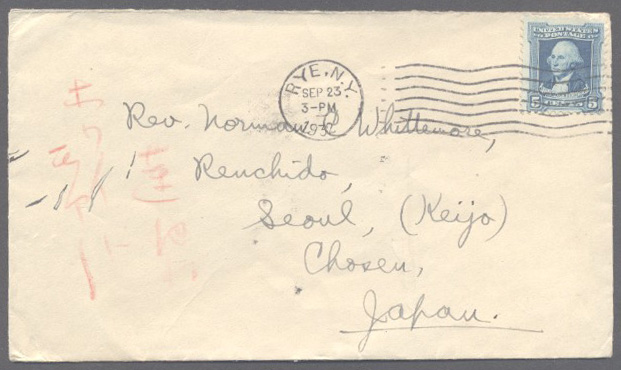 UNITED STATES
POSTAGE
5 5
RYE, N.Y.
SEP 23
3-PM
1932
Rev. Norman C Whittemore,
Renchido,
Seoul, (Keijo)
Chosen,
Japan.